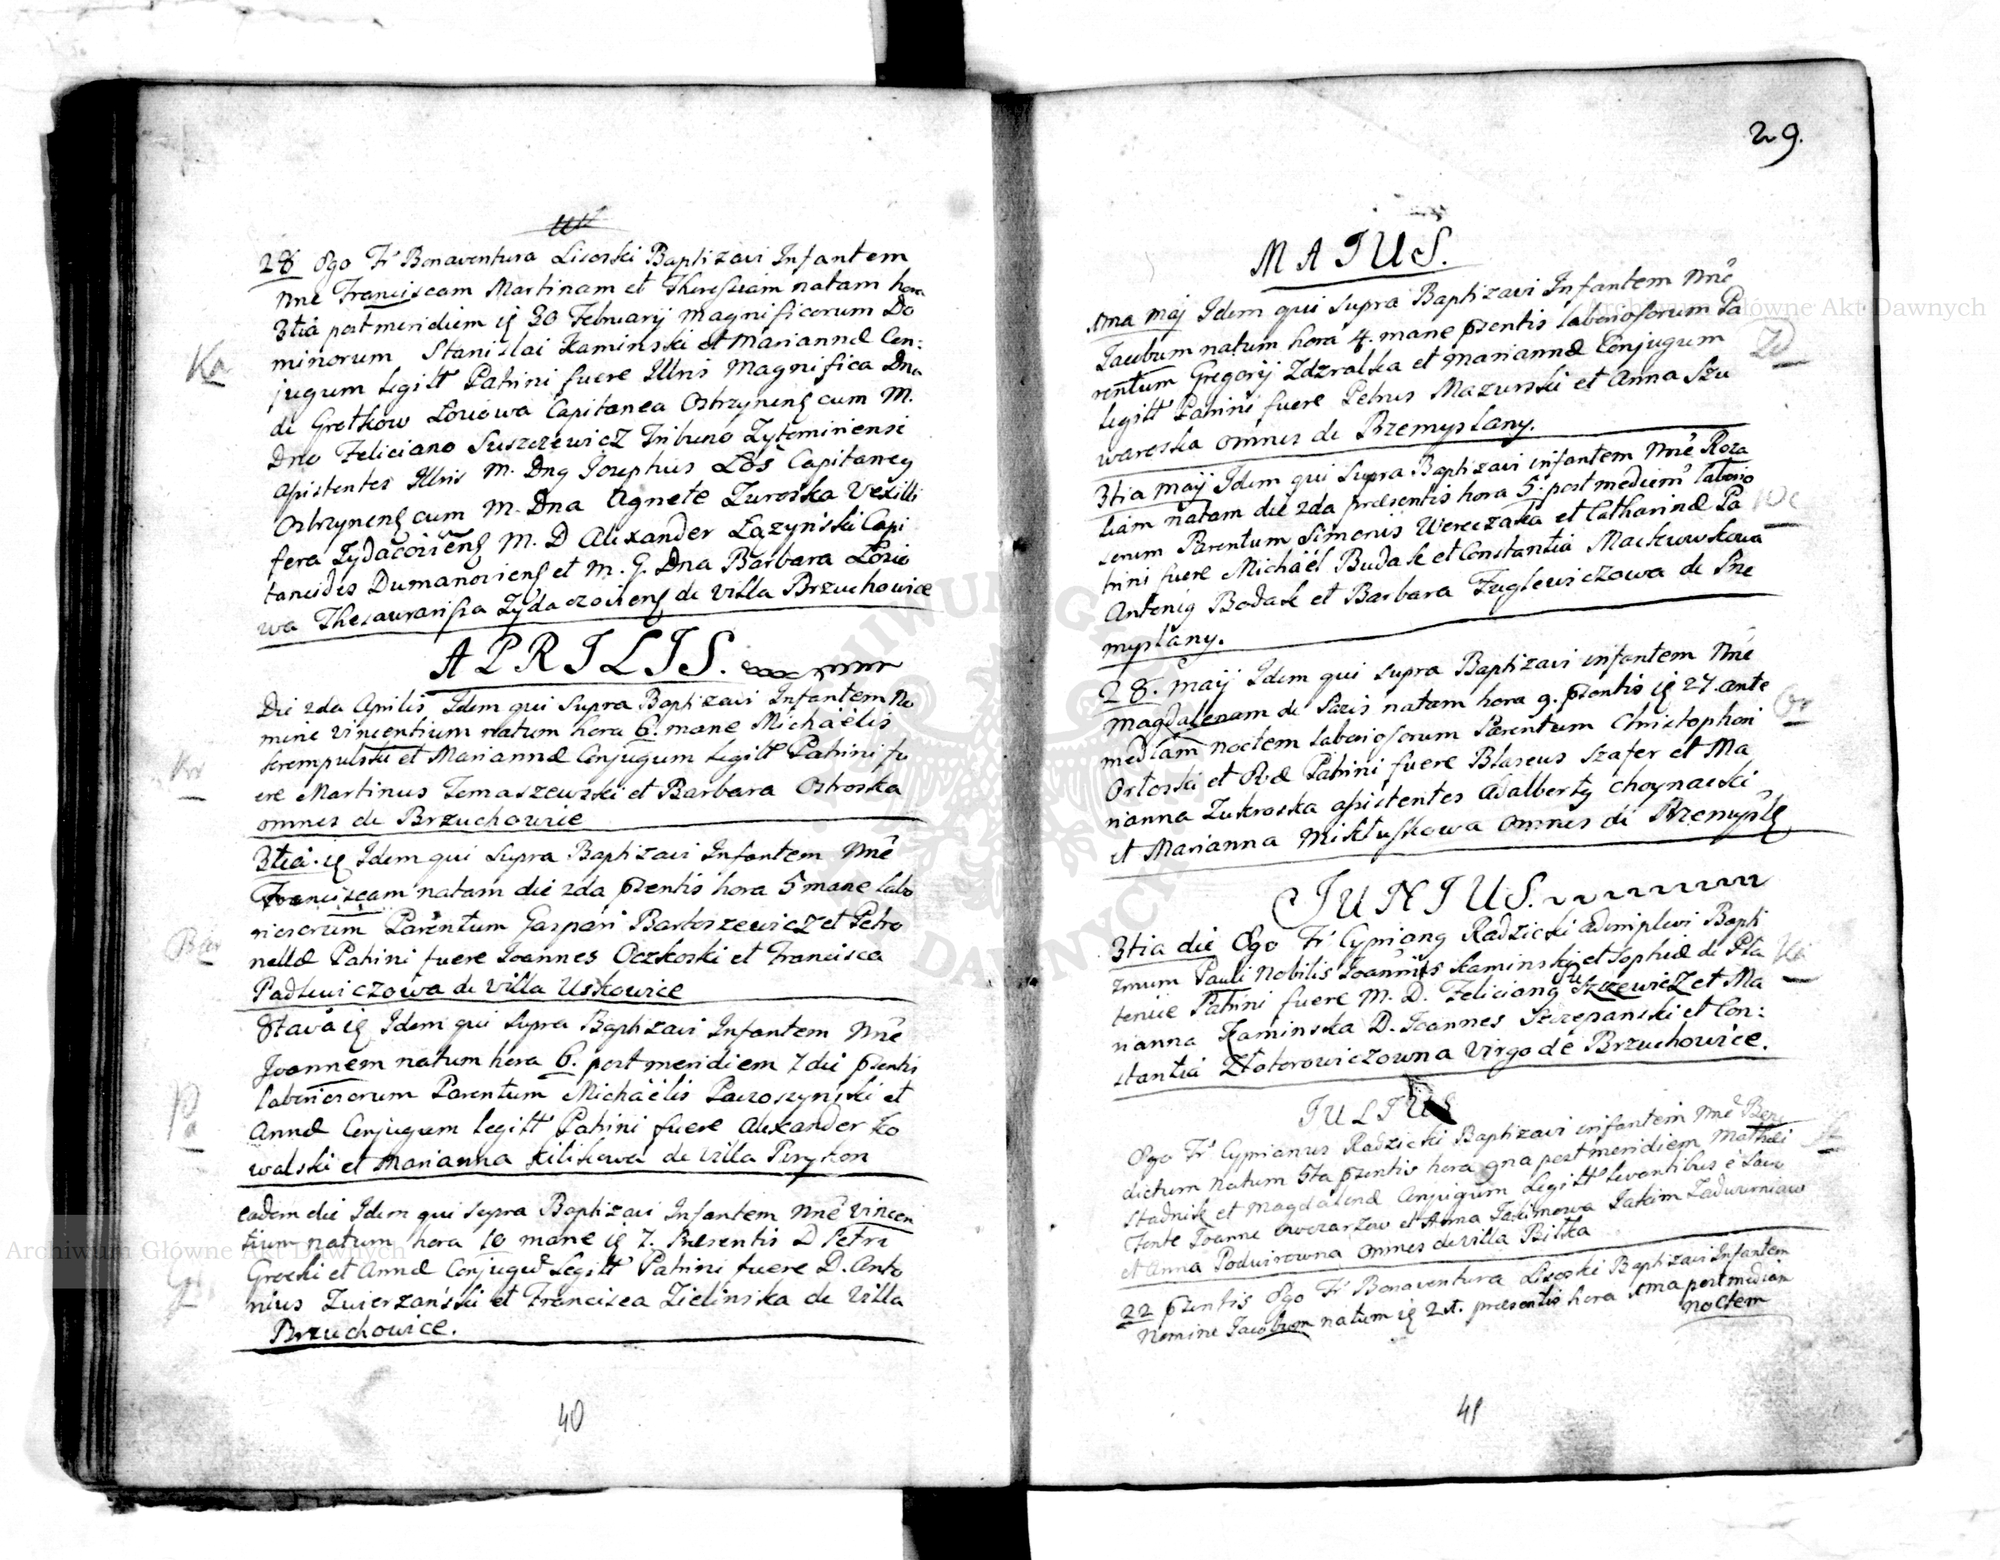 28 Ego Fr Bonaventura Licorski Baptizavi Infantem
nne Franciscam Martinam et Theresiam natam hora
3tia post meridiem 30 Februarij Magnificorum Do
minorum Stanislai Kaminski et Mariannæ Con:
Ka
jugum legitt Patrini fuere Illris Magnifica Dna
de Grotkow Łosiowa Capitanea Ostrzynens cum M.
Dno Feliciano Suszczewicz Tribuno Zytomiriensi
Assistentes Illris M. Dnq Josephus Łoś Capitaneq
Ostrzynens cum M. Dna Agnete Zuroska Vexilli
fera M. D Alexander Łązyński Capi
taneides et M. G. Dna Barbara Łosio
wa de villa Brzuchowice
APRILIS.
Die 2da Aprilis Idem qui supra Baptizavi Infantem No
mine Vincentium natum hora 6. mane Michaëlis
et Mariannæ Conjugum Legitt Patrini fu
Kr
ere Martinus Tomaszewski et Barbara Ostroska
omnes de Brzuchowice
3tiâ Idem qui supra Baptizavi Infantem Nnê
Franciscam natam die 2da pzentis hora 5 mane labo
riosorum Parentum Gaspari Bartoszewicz et Petro
Bar
nellæ Patrini fuere Joannes Oczkoski et Francisca
Padlewiczowa de Villa Uskowice
8tavâ Idem qui supra Baptizavi Infantem Nnê
Joannem natum hora 6. post meridiem 7 die pzentis
laboriosorum Parentum Michaëlis Paroszynski et
Pa
Annæ Conjugum legitt Patrini fuere Alexander Ko
walski et Marianna Kilikowa de villa
eadem die Idem qui supra Baptizavi Infantem Nnê Vincen
tium natum hora 10 mane 7. Præsentis D Petri
Grocki et Annæ Legitt Patrini fuere D. Anto
Gr
nius Zwierzański et Francisca Zielinska de Villa
Brzuchowice.
40
29.
MAIUS.
1ma Maij Idem qui supra Baptizavi Infantem Nnê
Jacobum natum hora 4. mane pzentis laboriosorum Pa
Zd
rentum Gregorij Zdzralka et Mariannæ Conjugum
legitt Patrini fuere Petrus Mazurski et Anna Szu
waroska omnes de Przemyslany.
3tia Maij Idem qui supra Baptizavi infantem Nnê Roza
liam natam die 2da præsentis hora 5. post mediem laborio
We
sorum Parentum Simonis Wereczaka et Catharinæ Pa
trini fuere Michaël Budak et Constantia Mackowskowa
Antoniq Bodak et Barbara Fuglewiczowa de Prze
myslany.
28. Maij Idem qui supra Baptizavi infantem Nnê
Magdalenam de Pazis natam hora 9. pzentis 27 ante
Or
mediam noctem laboriosorum Parentum Christophori
Orłoski et Evæ Patrini fuere Blaseus Szafer et Ma
rianna Zukroska assistentes Adalbertq Choynacski
et Marianna Mikłuszkowa omnes de Przemyśl
JUNIUS.
3tia die Ego Fr Cyprianq Radzicki adimplevi Bapti
zmum Pauli Nobilis Joannis Kaminski et Sophiæ de Pla
Ka
tenicie Patrini fuere M. D. Felicianq Suszczewicz et Ma
rianna Kaminska D. Joannes Szczepanski et Con:
stantia Złotorowiczowna Virgo de Brzuchowice.
JULIUS
Ego Fr Cyprianus Radzicki Baptizavi infantem Nnê Bene
dictum natum 5ta pzentis hora 9na post meridiem Mathæi
St
Stadnik et Magdalenæ Conjugum Legitt levantibus è Sacro
Fonte Joanne Owczarzow et Anna Jakimowa Jakim Zadwurniaw
et Anna Podwirowna omnes de villa Bitka
22 pzentis Ego Fr Bonaventura Licoski Baptizavi Infantem
Nomine Jacobum natum 21. præsentis hora 1ma post mediam
noctem
41
Archiwum Główne Akt Dawnych
Archiwum Główne Akt Dawnych
ARCHIWUM GŁÓWNE AKT DAWNYCH